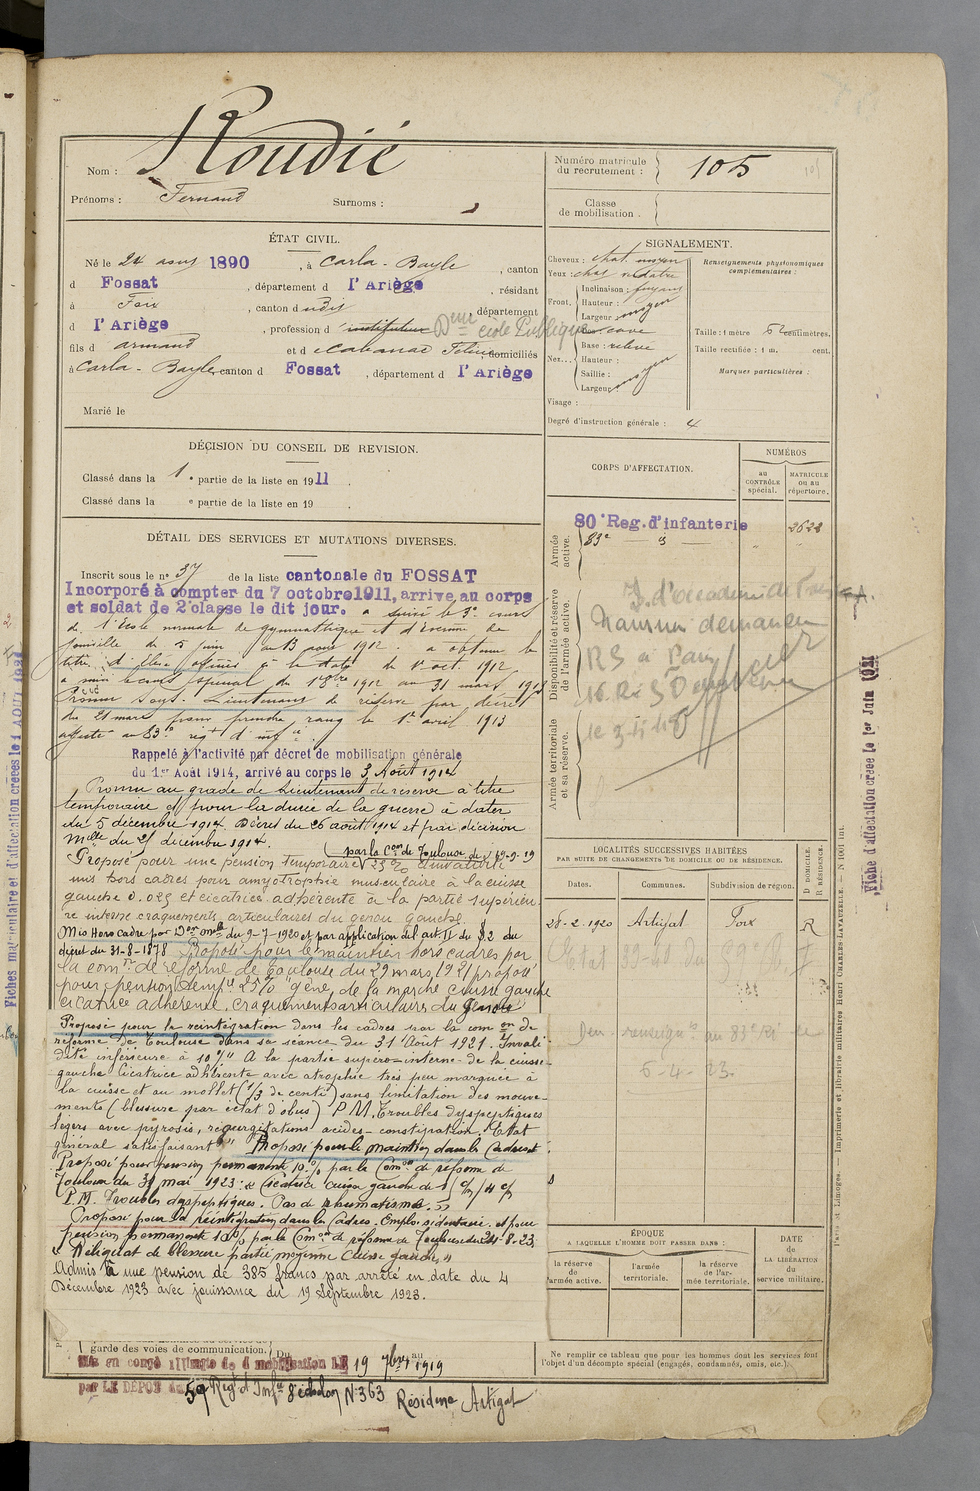 Nom : Roudié
Prénoms : Fernand Surnoms :
ÉTAT CIVIL.
Né le 24 aout 1890, à Carla-Bayle, canton
d Fossat, département d l'Ariège, résidant
à Foix, canton d udit, département
d l'Ariège, profession d instituteur Deur école Publique
fils d armand et d Cabanac Félicie domiciliés
à Carla-Bayle, canton d Fossat, département d l'Ariège
Marié le
DÉCISION DU CONSEIL DE REVISION.
Classé dans la 1e partie de la liste en 1911.
Classé dans la e partie de la liste en 19 .
DÉTAIL DES SERVICES ET MUTATIONS DIVERSES.
Inscrit sous le no 37 de la liste cantonale du FOSSAT
Incorporé à compter du 7 octobre 1911, arrivé au corps
et soldat de 2e classe le dit jour. a suivi le 3e cours
de l'École normale de gymnastique et d'Escrime de
Joinville du 5 juin au 13 aout 1912. a obtenu le
titre d'élève officier à la date du 1er oct. 1912
a suivi le cours spécial du 1er 8bre 1912 au 31 mars 1913
Promu sous-Lieutenant de réserve par décret
du 21 mars pour prendre rang le 1er avril 1913
affecté au 83e régt d'infie
Rappelé à l'activité par décret de mobilisation générale
du 1er Août 1914, arrivé au corps le 3 Août 1914
Promu au grade de Lieutenant de réserve à titre
temporaire et pour la durée de la guerre à dater
du 5 décembre 1914. Décret du 26 août 1914 et par décision
Mlle du 25 décembre 1914. (par la Con de Toulouse du 19-9-19
Proposé pour une pension temporaire 25% d'invalidité
mis hors cadres pour amyotrophie musculaire à la cuisse
gauche 0.025 et cicatrice adhérente à la partie supérieu-
re interne craquements articulaires du genou gauche.
Mis Hors cadre par Don mlle du 9-7-1920 et par application de l'art. II du § 2 du
décret du 31-8-1878 Proposé pour le maintien hors cadres par
la comon de réforme de Toulouse du 29 mars 1921 proposé
pour pension temp. 25% gêne de la marche cuisse gauche
cicatrice adhérence, craquements articulaires du genou
Proposé pour la réintégration dans les cadres par la comon de
réforme de Toulouse dans sa séance du 31 Août 1921. Invali-
dité inférieure à 10% A la partie supéro-interne de la cuisse
gauche Cicatrice adhérente avec atrophie très peu marquée à
la cuisse et au mollet (1/3 de centi) sans limitation des mouve-
ments (blessure par éclat d'obus) P.M. Troubles dyspeptiques
légers avec pyrosis, régurgitations acides - constipation. Etat
général satisfaisant" Proposé pour le maintien dans les Cadres et
Proposé pour pension permanente 10% par la Comon de réforme de
Toulouse du 31 mai 1923: « Cicatrice cuisse gauche de
P.M. Troubles dyspeptiques. Pas de rhumatisme. »
Proposé pour la réintégration dans les Cadres. Emploi sédentaire. et pour
pension permanente 10% par la Comon de réforme de Toulouse du 24-8-23
« Reliquat de blessure partie moyenne cuisse gauche »
Admis à une pension de 385 francs par arrêté en date du 4
Décembre 1923 avec jouissance du 19 Septembre 1923.
garde des voies de communication.
Mis en congé illimité de démobilisation LE 19 7bre 1919
par LE DÉPÔT du 59 Régt d'Infie 8e échelon No 363 Résidence Artigat
Numéro matricule du recrutement : 105
Classe de mobilisation .
SIGNALEMENT.
Cheveux : chat. moyen
Yeux :
Front. Inclinaison : fuyant
Hauteur :
Largeur : moyen
Nez... Dos : cave
Base : relevé
Hauteur :
Saillie :
Largeur : moyen
Visage :
Renseignements physionomiques complémentaires :
Taille : 1 mètre 62 centimètres.
Taille rectifiée : 1 m. cent.
Marques particulières :
Degré d'instruction générale : 4
CORPS D'AFFECTATION.
NUMÉROS
au CONTRÔLE spécial.
MATRICULE ou au répertoire.
Armée active.
80e Reg. d'infanterie 2622
83e id
Disponibilité et réserve de l'armée active.
Armée territoriale et sa réserve.
LOCALITÉS SUCCESSIVES HABITÉES
PAR SUITE DE CHANGEMENTS DE DOMICILE OU DE RÉSIDENCE.
Dates. Communes. Subdivision de région. D DOMICILE. R RÉSIDENCE.
28-2-1920 Artigat Foix R
6-4-23
ÉPOQUE
A LAQUELLE L'HOMME DOIT PASSER DANS :
la réserve de l'armée active.
l'armée territoriale.
la réserve de l'armée territoriale.
DATE DE LA LIBÉRATION du service militaire.
Ne remplir ce tableau que pour les hommes dont les services font
l'objet d'un décompte spécial (engagés, condamnés, omis, etc.).
Limoges. — Imprimerie et librairie militaires Henri CHARLES-LAVAUZELLE. — N° 1001 int.
Fiche d'affectation créée le 1er Juin 1921
Fiches matriculaire et d'affectation créées le 1 AOUT 1921